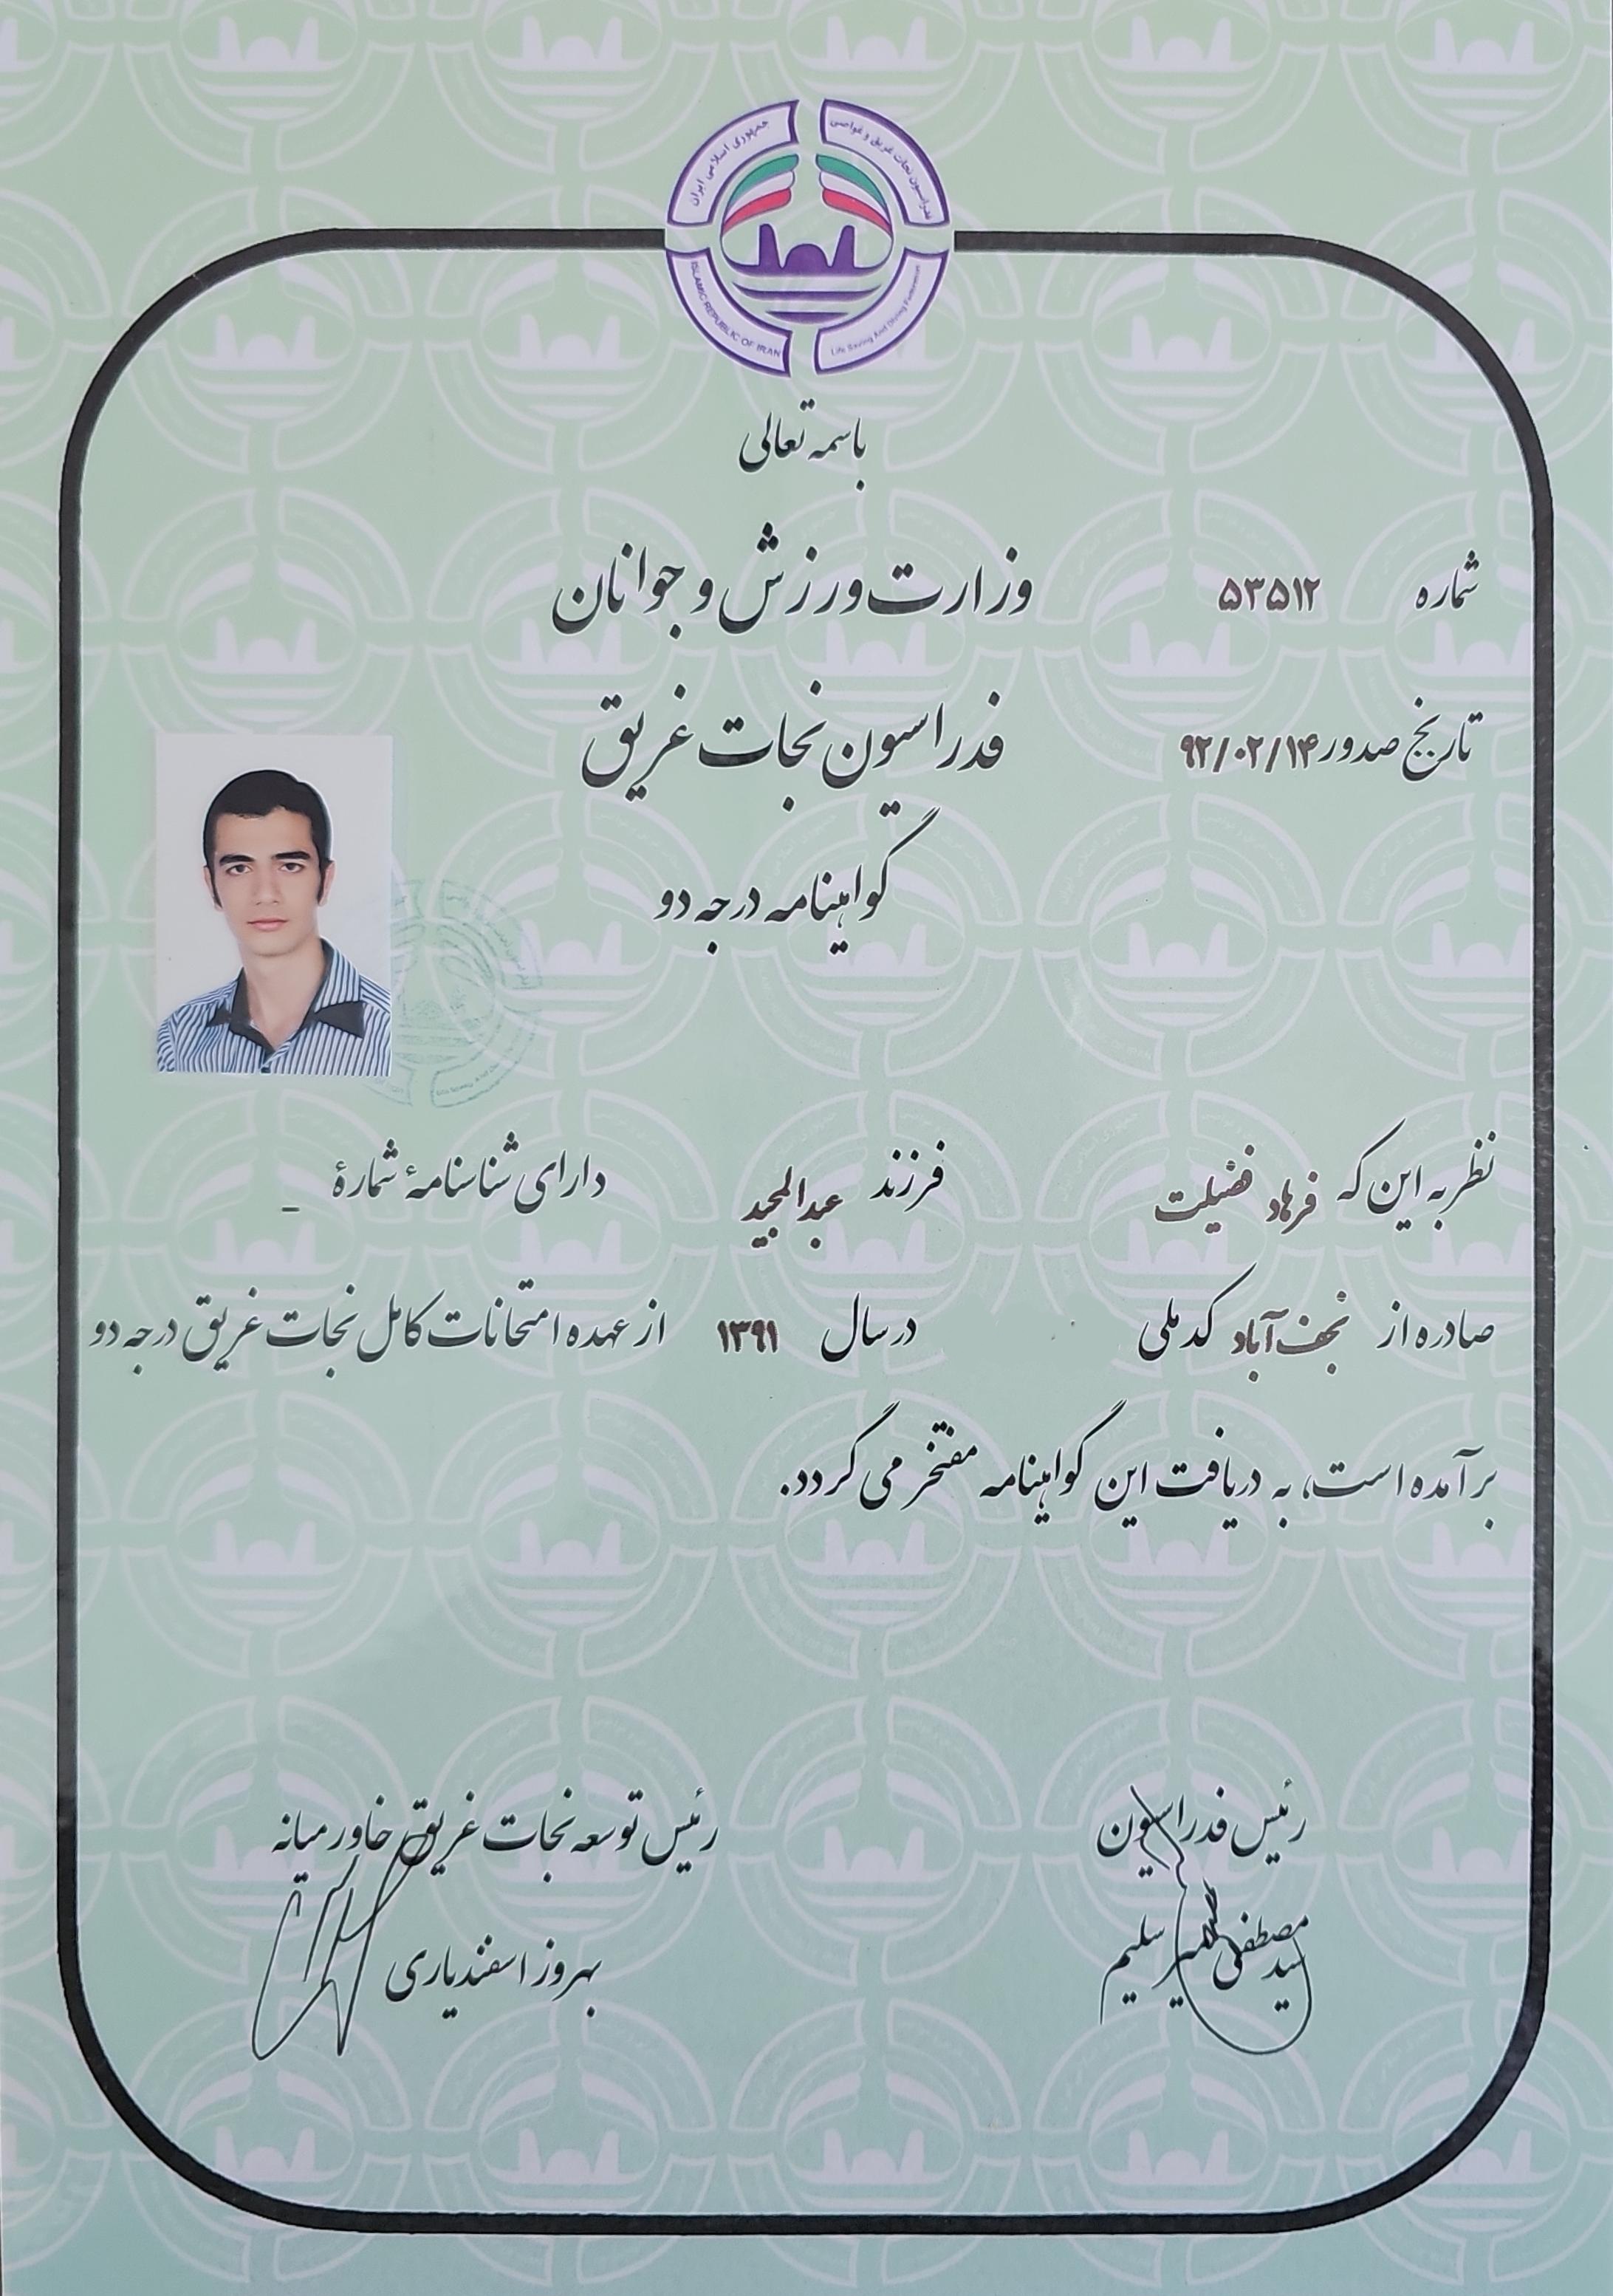 جمهوری اسلامی ایران
فدراسیون نجات غریق و غواصی
ISLAMIC REPUBLIC OF IRAN
Life Saving And Diving Federation
باسمه تعالی
شماره ۵۳۵۱۲
وزارت ورزش و جوانان
تاریخ صدور ۹۲/۰۲/۱۴
فدراسیون نجات غریق
گواهینامه درجه دو
نظر به این که فرهاد فضیلت فرزند عبدالمجید دارای شناسنامهٔ شمارهٔ _
صادره از نجف آباد کد ملی در سال ۱۳۹۱ از عهده امتحانات کامل نجات غریق درجه دو
برآمده است، به دریافت این گواهینامه مفتخر می گردد.
رئیس فدراسیون
سید مصطفی میرسلیم
رئیس توسعه نجات غریق خاورمیانه
بهروز اسفندیاری